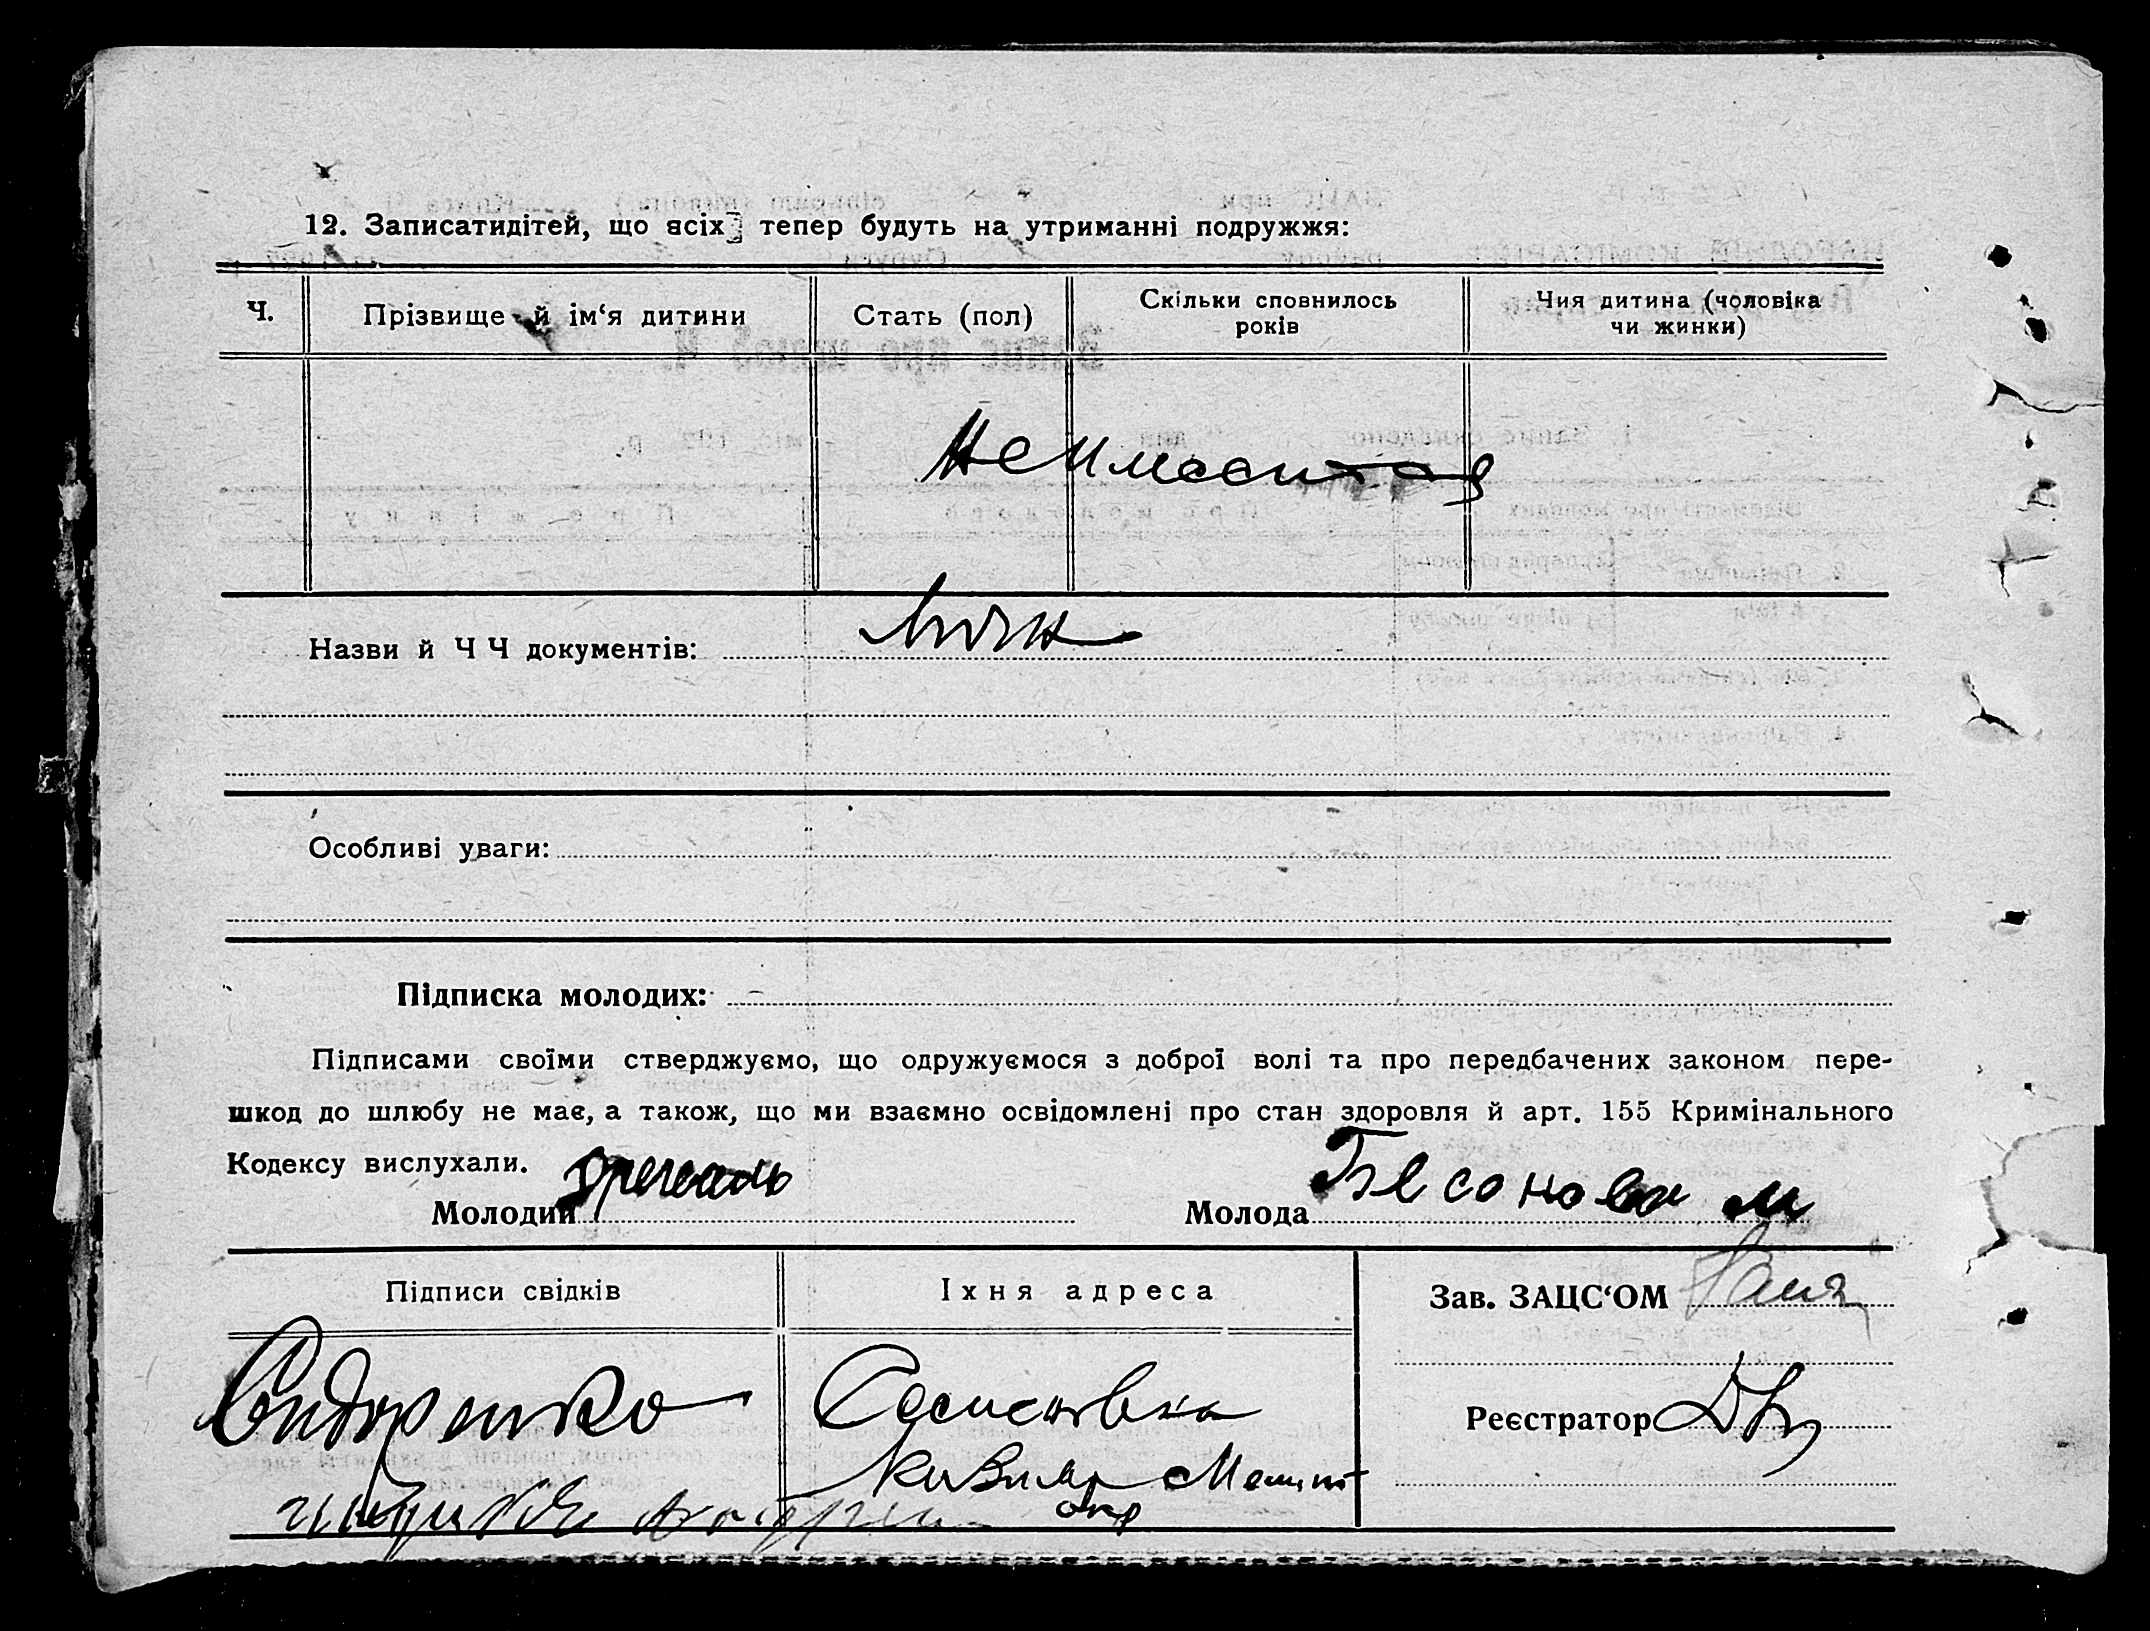 12. Записатидітей, що всіх тепер будуть на утриманні подружжя:
Ч.
Прізвище й ім‘я дитини
Стать (пол)
Скільки сповнилось
років
Чия дитина (чоловіка
чи жинки)
Не имеется
Назви й Ч Ч документів:
Особливі уваги:
Підписка молодих:
Підписами своїми стверджуємо, що одружуємося з доброї волі та про передбачених законом пере-
шкод до шлюбу не має, а також, що ми взаємно освідомлені про стан здоровля й арт. 155 Кримінального
Кодексу вислухали.
Молодий
Молода Бесонова м
Підписи свідків
Іхня адреса
Зав. ЗАЦС‘ОМ
Сидоренко
Реєстратор
окр